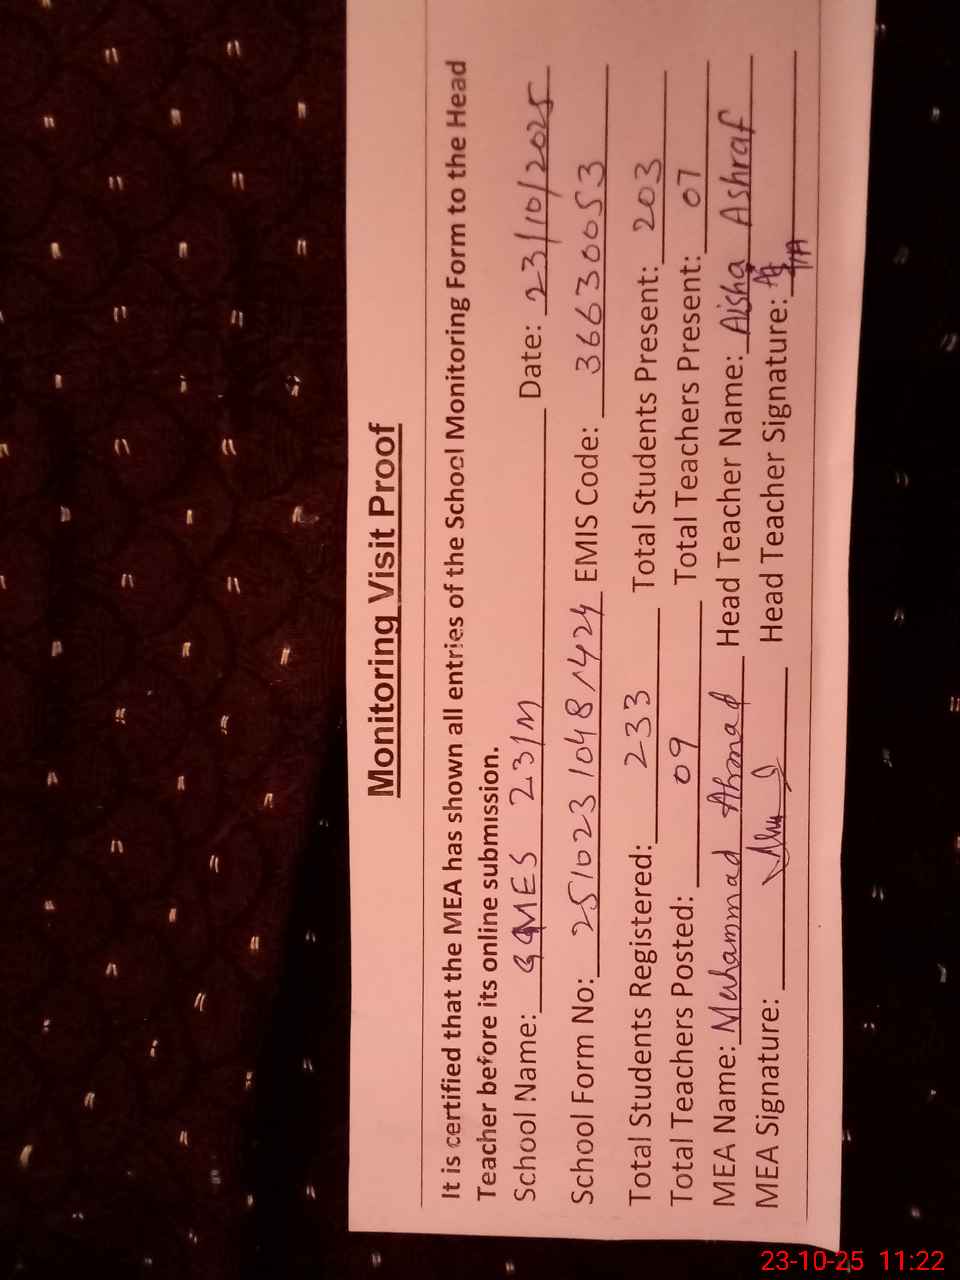 Monitoring Visit Proof
It is certified that the MEA has shown all entries of the School Monitoring Form to the Head
Teacher before its online submission.
School Name: GGMES 231M Date: 23/10/2025
School Form No: 25102310481424 EMIS Code: 36630053
Total Students Registered: 233 Total Students Present: 203
Total Teachers Posted: 09 Total Teachers Present: 07
MEA Name: Muhammad Ahmad Head Teacher Name: Aisha Ashraf
MEA Signature: Head Teacher Signature:
23-10-25 11:22